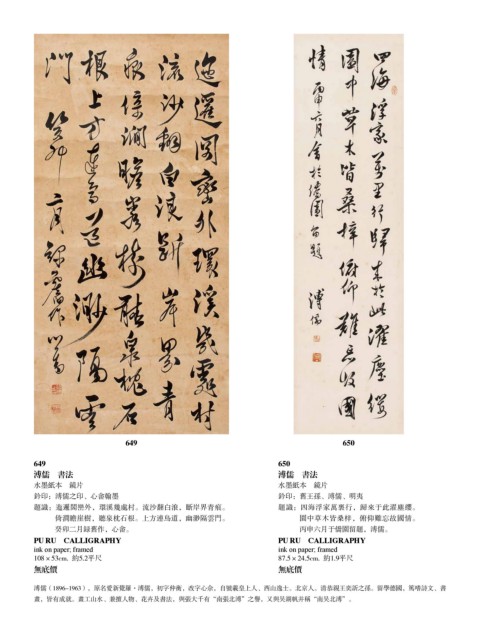 迤邐閩巒外環溪幾處村
流沙翻白浪斷岸畀青
痕倚澗瞻崖樹聽泉枕石
根上方連鳥道幽渺隔雲
門 癸卯二月錄舊作 心畬
四海浮家萬里行歸來於此濯塵纓
園中草木皆桑梓俯仰難忘故國
情 丙申六月會於儘園留題 溥儒
649
650
649
溥儒　書法
水墨紙本　鏡片
鈐印：溥儒之印、心畬翰墨
題識：
流沙翻白浪，斷岸界青痕。
倚澗瞻崖樹，聽泉枕石根。上方連鳥道，幽渺隔雲門。
癸卯二月錄舊作，心畬。
PU RU　CALLIGRAPHY
ink on paper; framed
108 × 53cm. 約5.2平尺
無底價
650
溥儒　書法
水墨紙本　鏡片
鈐印：舊王孫、溥儒、明夷
題識：四海浮家萬里行，歸來于此濯塵纓。
園中草木皆桑梓，俯仰難忘故國情。
丙申六月于儘園留題。溥儒。
PU RU　CALLIGRAPHY
ink on paper; framed
87.5 × 24.5cm. 約1.9平尺
無底價
溥儒（1896-1963），原名愛新覺羅·溥儒，初字仲衡，改字心畬，自號羲皇上人、西山逸士。北京人。清恭親王奕訢之孫。留學德國，篤嗜詩文、書
畫，皆有成就。畫工山水、兼擅人物、花卉及書法，與張大千有“南張北溥”之譽，又與吳湖帆并稱“南吳北溥”。